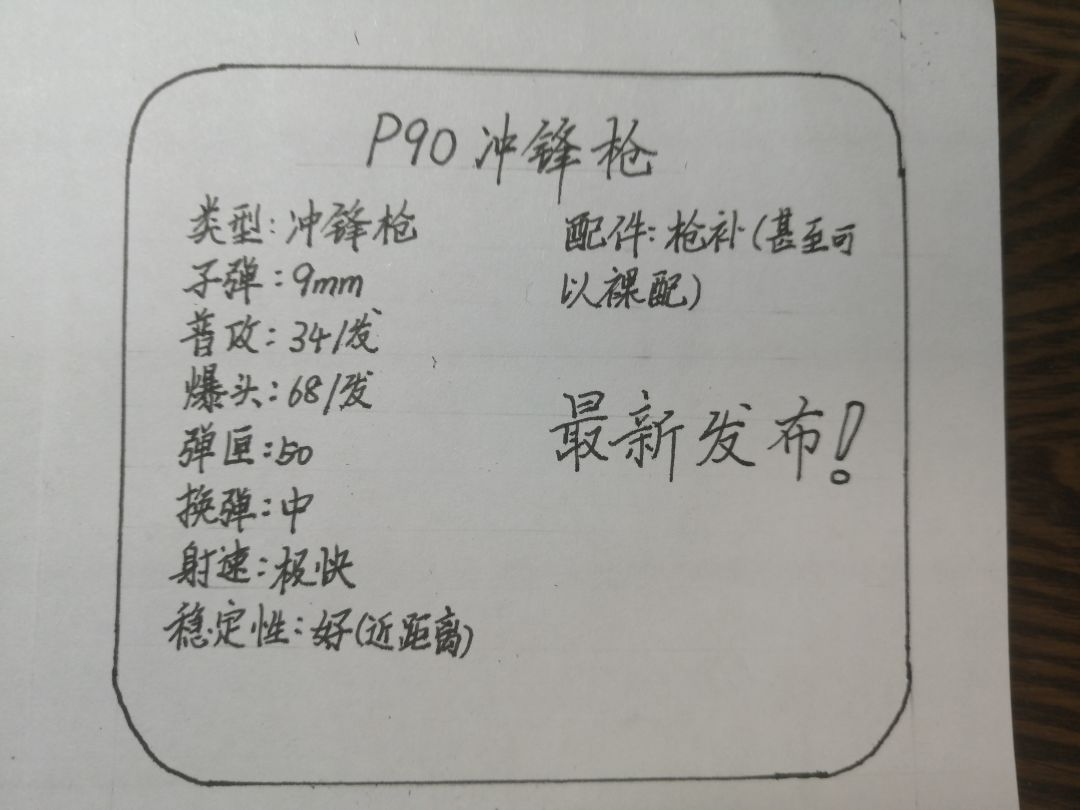 P90冲锋枪
类型:冲锋枪
子弹:9mm
普攻:34/发
爆头:68/发
弹匣:50
换弹:中
射速:极快
稳定性:好(近距离)
配件:枪补(甚至可
以裸配)
最新发布!